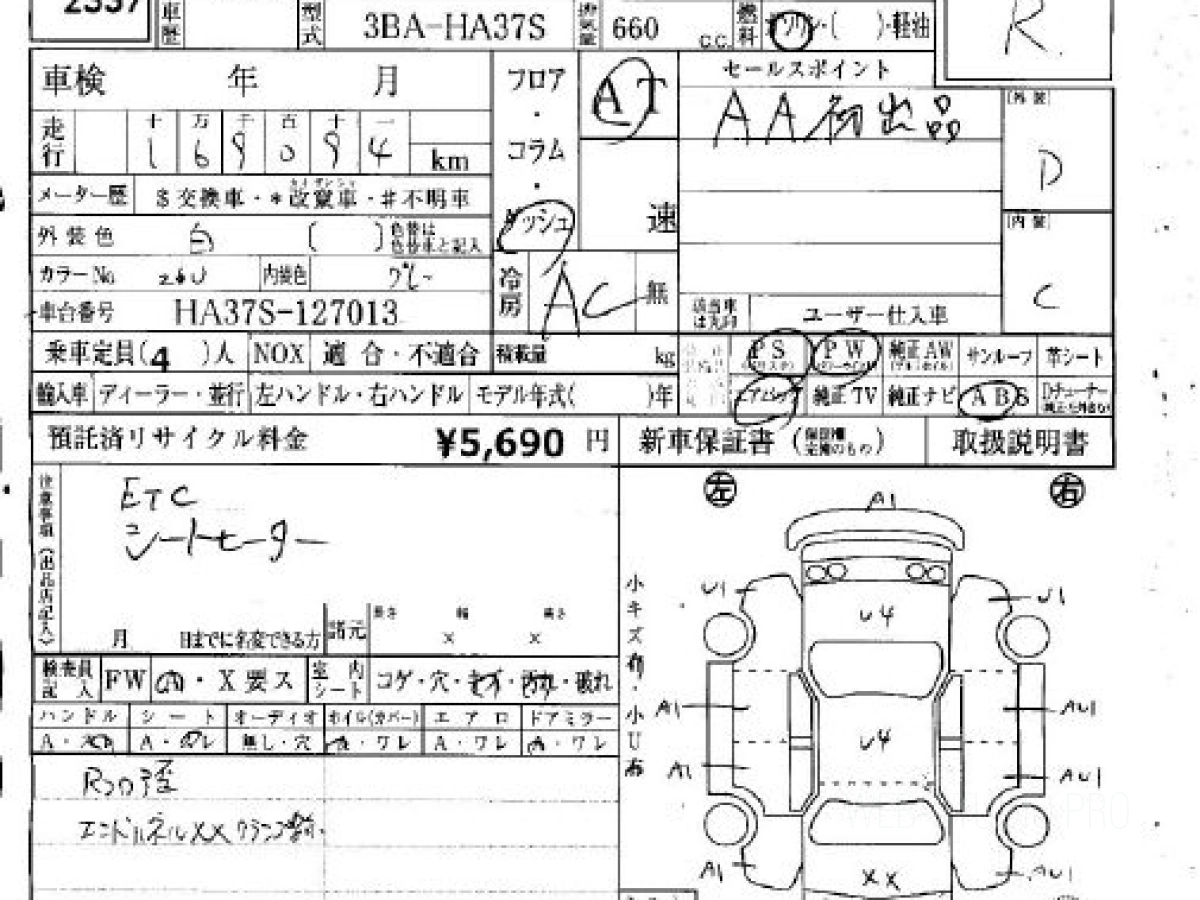 2337
車歴 型式 3BA-HA37S 排気量 660 c.c. 燃料 ガソリン・( )・軽油 R
車検 年 月 フロア・コラム・ダッシュ AT 速 セールスポイント
AA初出品
走行 十 万 千 百 十 一
1 6 9 0 9 4 km
[外装] D
メーター歴 $交換車・*改竄車・#不明車
外装色 白 ( ) 色替は色替車と記入
[内装] C
カラーNo 26U 内装色 グレー
冷房 AC 無
車台番号 HA37S-127013
該当車は丸印 ユーザー仕入車
乗車定員(4 )人 NOX 適合・不適合 積載量 kg PS PW 純正AW サンルーフ 革シート
輸入車 ディーラー・並行 左ハンドル・右ハンドル モデル年式( )年 エアバッグ 純正TV 純正ナビ ABS Dチューナー
預託済リサイクル料金 ¥5,690 円 新車保証書 取扱説明書
注意事項(出品店記入)
ETC
シートヒーター
月 日までに名変できる方 諸元 長さ 幅 高さ
× ×
検査員記入 FW ・X要ス 室内シート コゲ・穴・キズ・汚れ・破れ
ハンドル シート オーディオ ホイル(カバー) エアロ ドアミラー
A・スレ A・スレ 無し・穴 A・ワレ A・ワレ A・ワレ
Rコロ歪
エンドパネルXX クランプ跡.
小キズ有・小U有
左 右
A1
U1 U1
U4
A1 AU1
U4
A1 AU1
A1 AU1
XX